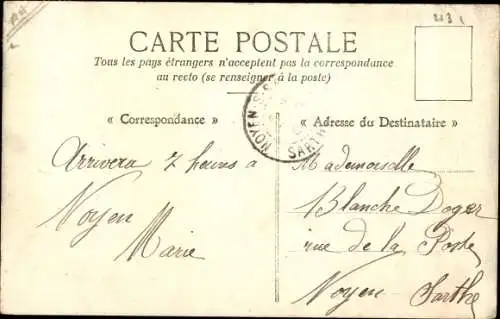 213
CARTE POSTALE
Tous les pays étrangers n'acceptent pas la correspondance
au recto (se renseigner à la poste)
NOYEN-S-S
SARTHE
« Correspondance »
« Adresse du Destinataire »
Arrivera 7 heures à
Noyen
Marie
Mademoiselle
Blanche Doger
rue de la Poste
Noyen Sarthe